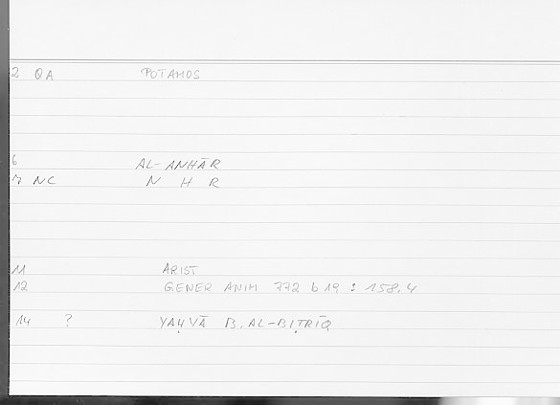 2 QA POTAMOS
6 AL-ANHĀR
7 NC N H R
11 ARIST
12 GENER ANIM 772 b 19 : 158.4
14 ? YAḤYĀ B. AL-BIṬRĪQ